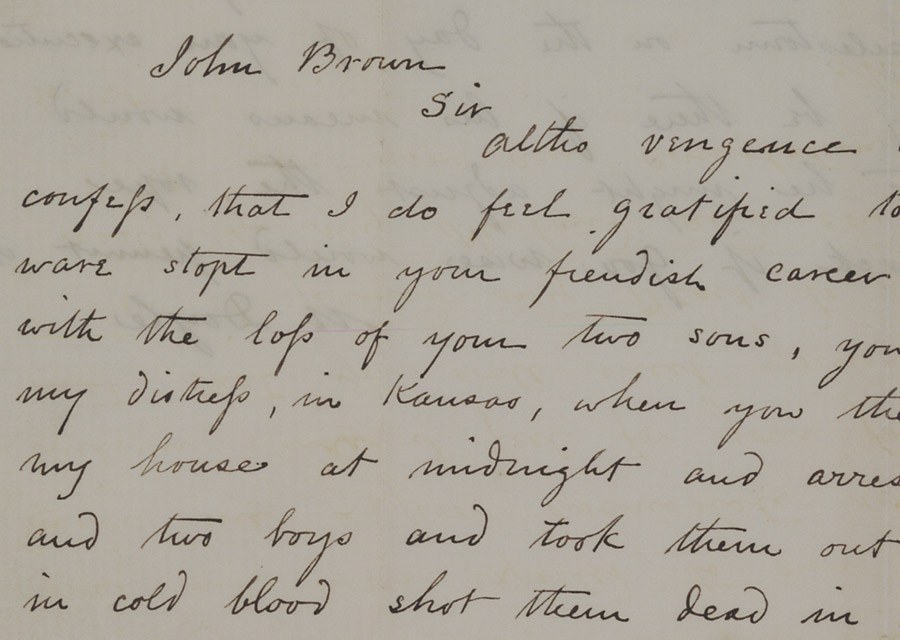 John Brown
Sir
altho vengence
confess, that I do feel gratified to
ware stopt in your fiendish career
with the loss of your two sons, you
my distress, in Kansas, when you the
my house at midnight and arres
and two boys and took them out
in cold blood shot them dead in